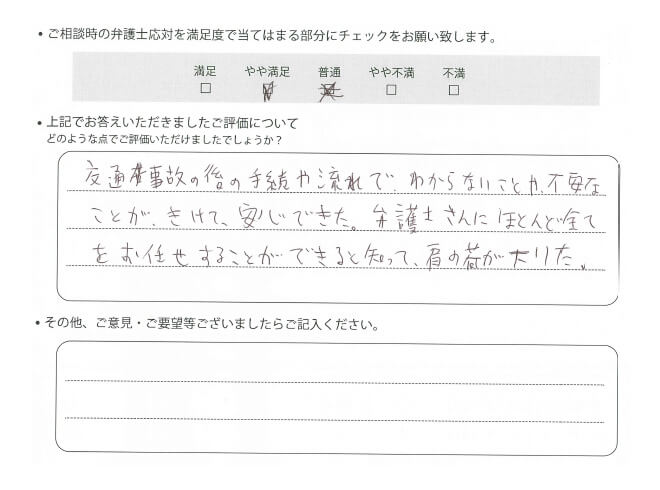 • ご相談時の弁護士応対を満足度で当てはまる部分にチェックをお願い致します。
満足 やや満足 普通 やや不満 不満
• 上記でお答えいただきましたご評価について
どのような点でご評価いただけましたでしょうか？
交通事故の後の手続や流れで、わからないことや、不安な
ことが、きけて、安心できた。弁護士さんにほとんど全て
をお任せすることができると知って、肩の荷が下りた。
• その他、ご意見・ご要望等ございましたらご記入ください。